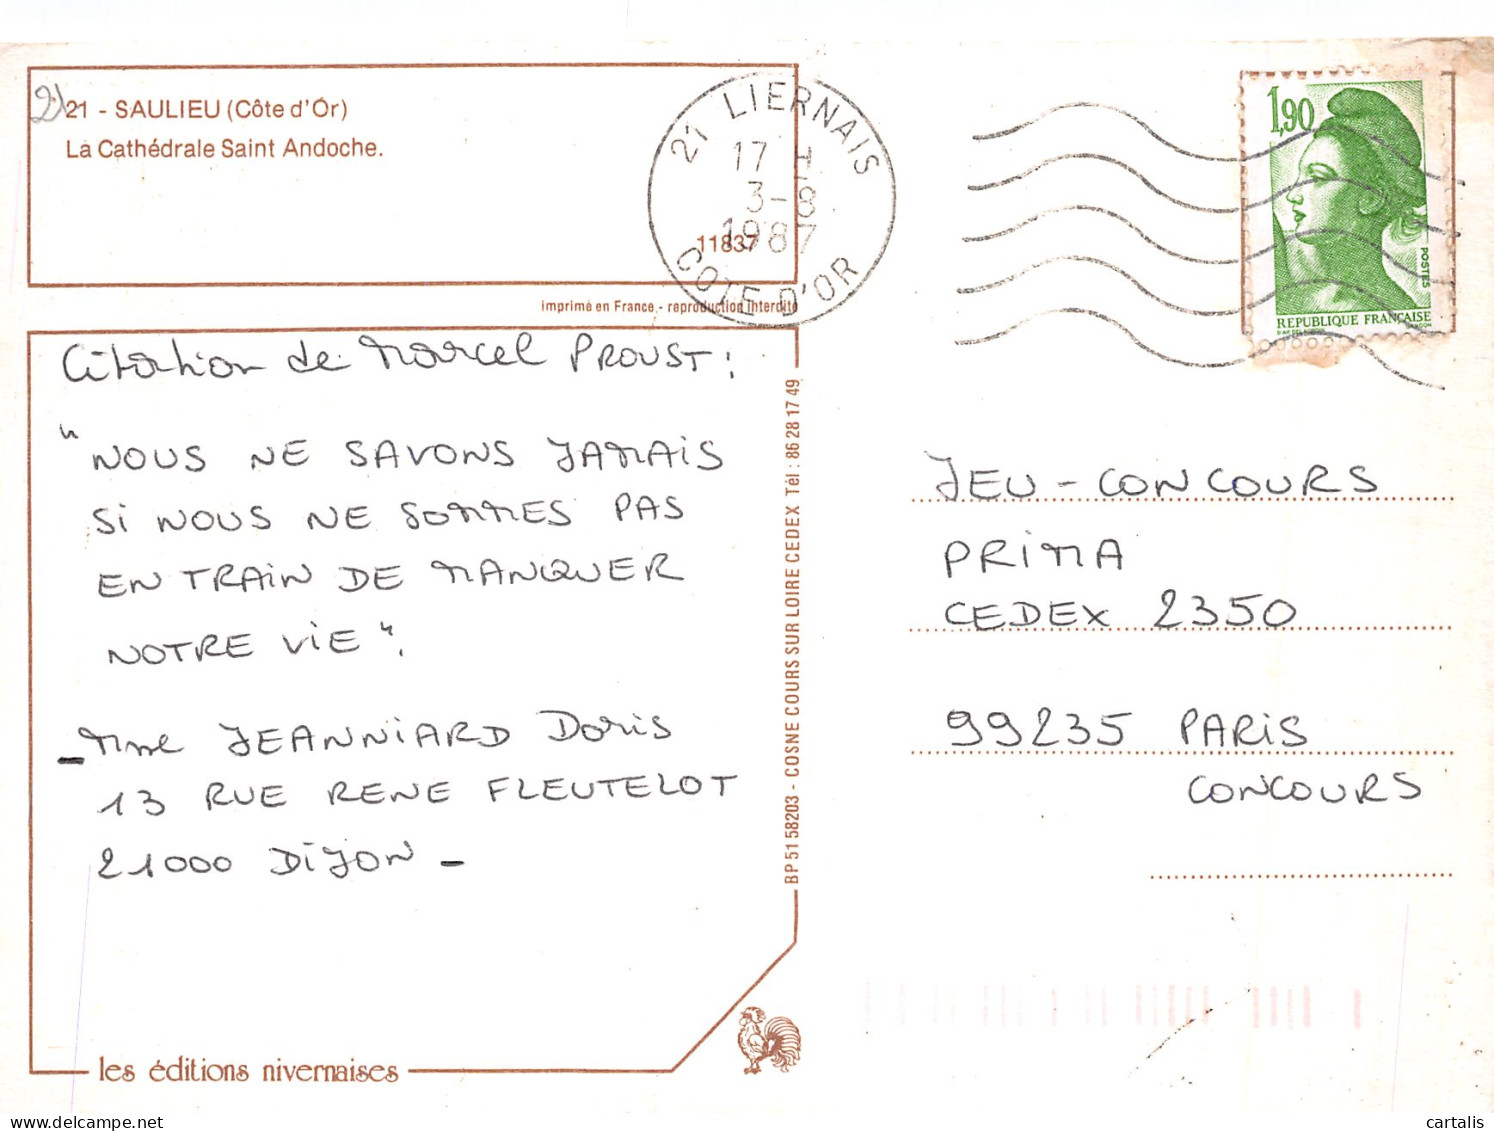 21 - SAULIEU (Côte d'Or)
La Cathédrale Saint Andoche.
11837
21 LIERNAIS
17 H
3-8
1987
COTE D'OR
1,90
POSTES
REPUBLIQUE FRANÇAISE
imprimé en France - reproduction interdite
Citation de Marcel PROUST :
"NOUS NE SAVONS JAMAIS
Si NOUS NE SOMMES PAS
EN TRAIN DE MANQUER
NOTRE ViE".
- Mme JEANNiARD Doris
13 RUE RENE FLEUTELOT
21000 DiJON -
BP 51 58203 - COSNE COURS SUR LOIRE CEDEX Tél : 86 28 17 49
JEU - CONCOURS
PRiMA
CEDEX 2350
99235 PARiS
CONCOURS
les éditions nivernaises
cartalis